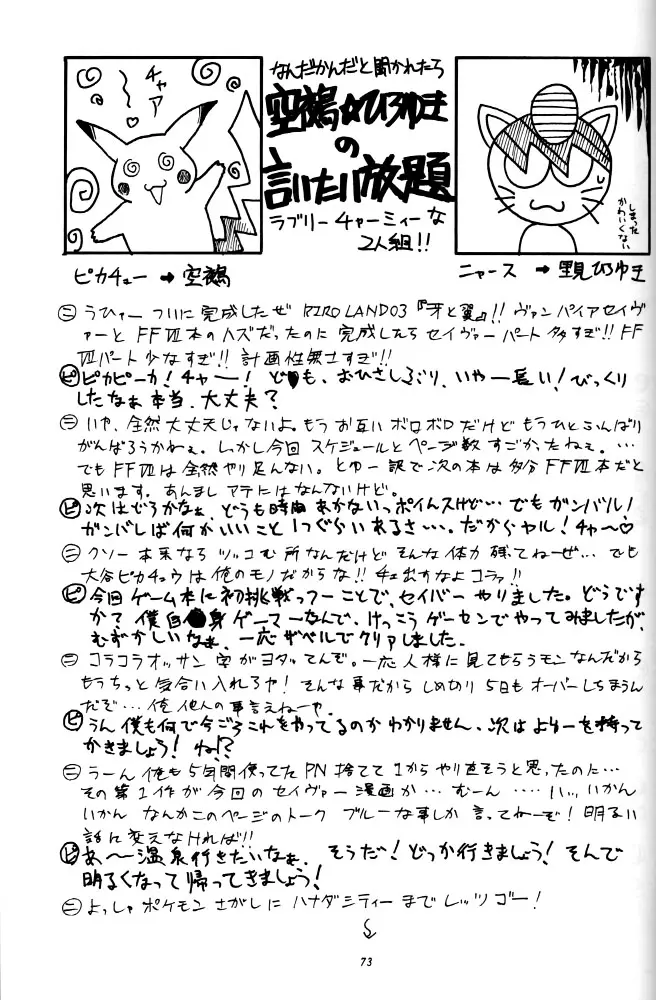 なんだかんだと聞かれたら
空鵺☆ひろゆき
の
言いたい放題
ラブリーチャーミィーな
2人組!!
チャア
♡
しまった
かわいくない
ピカチュー→空鵺
ニャース→里見ひろゆき
ニ うひゃーついに完成したぜ RIROLAND03『牙と翼』!! ヴァンパイアセイヴ
ァーとFFⅦ本のハズだったのに完成したらセイヴァーパート多すぎ!! FF
Ⅶパート少なすぎ!! 計画性無さすぎ!!
ピ ピカピーカ! チャー! ども、おひさしぶり、いやー長い! びっくり
したなぁ本当、大丈夫?
ニ いや、全然大丈夫じゃないよ。もうお互いボロボロだけどもうひとふんばり
がんばろうかねぇ。しかし今回スケジュールとページ数すごかったねぇ。…
でもFFⅦは全然やり足んない。とゆー訳で次の本は多分FFⅦ本だと
思います。あんましアテにはなんないけど。
ピ 次はどうかなぁ、どうも時間あかないっポイんスけど…でもガンバル!
ガンバレば何かいいこと1つぐらいあるさ…。だからヤル! チャ〜♡
ニ クソー本来ならツッコむ所なんだけどそんな体力残てねーぜ…でも
大谷ピカチュウは俺のモノだからな!! チェ出すなよコラァ!!
ピ 今回ゲーム本に初挑戦っつーことで、セイバーやりました。どうです
かて僕自身ゲーマーなんで、けっこうゲーセンでやってみましたが、
むずかしいなぁ、一応ザベルでクリアしました。
ニ コラコラオッサン字がヨタってんぞ。一応人様に見てもらうモンなんだから
もうちっと気合い入れろや! そんな事だからしめ切り5日もオーバーしちまうん
だぞ…俺他人の事言えねーや。
ピ うん僕も何で今ごろこれをやってるのかわかりません、次はよゆーを持って
かきましょう! ね!?
ニ うーん俺も5年間使ってたPN捨てて1からやり直そうと思ったのに…
その第1作が今回のセイヴァー漫画か…むーん……ハッ、いかん
いかんなんかこのページのトークブルーな事しか言ってねーぞ! 明るい
話に変えなければ!!
ピ あ〜温泉行きたいなぁ、そうだ! どっか行きましょう! そんで
明るくなって帰ってきましょう!
ニ よっしゃポケモンさがしにハナダシティーまでレッツゴー!
73